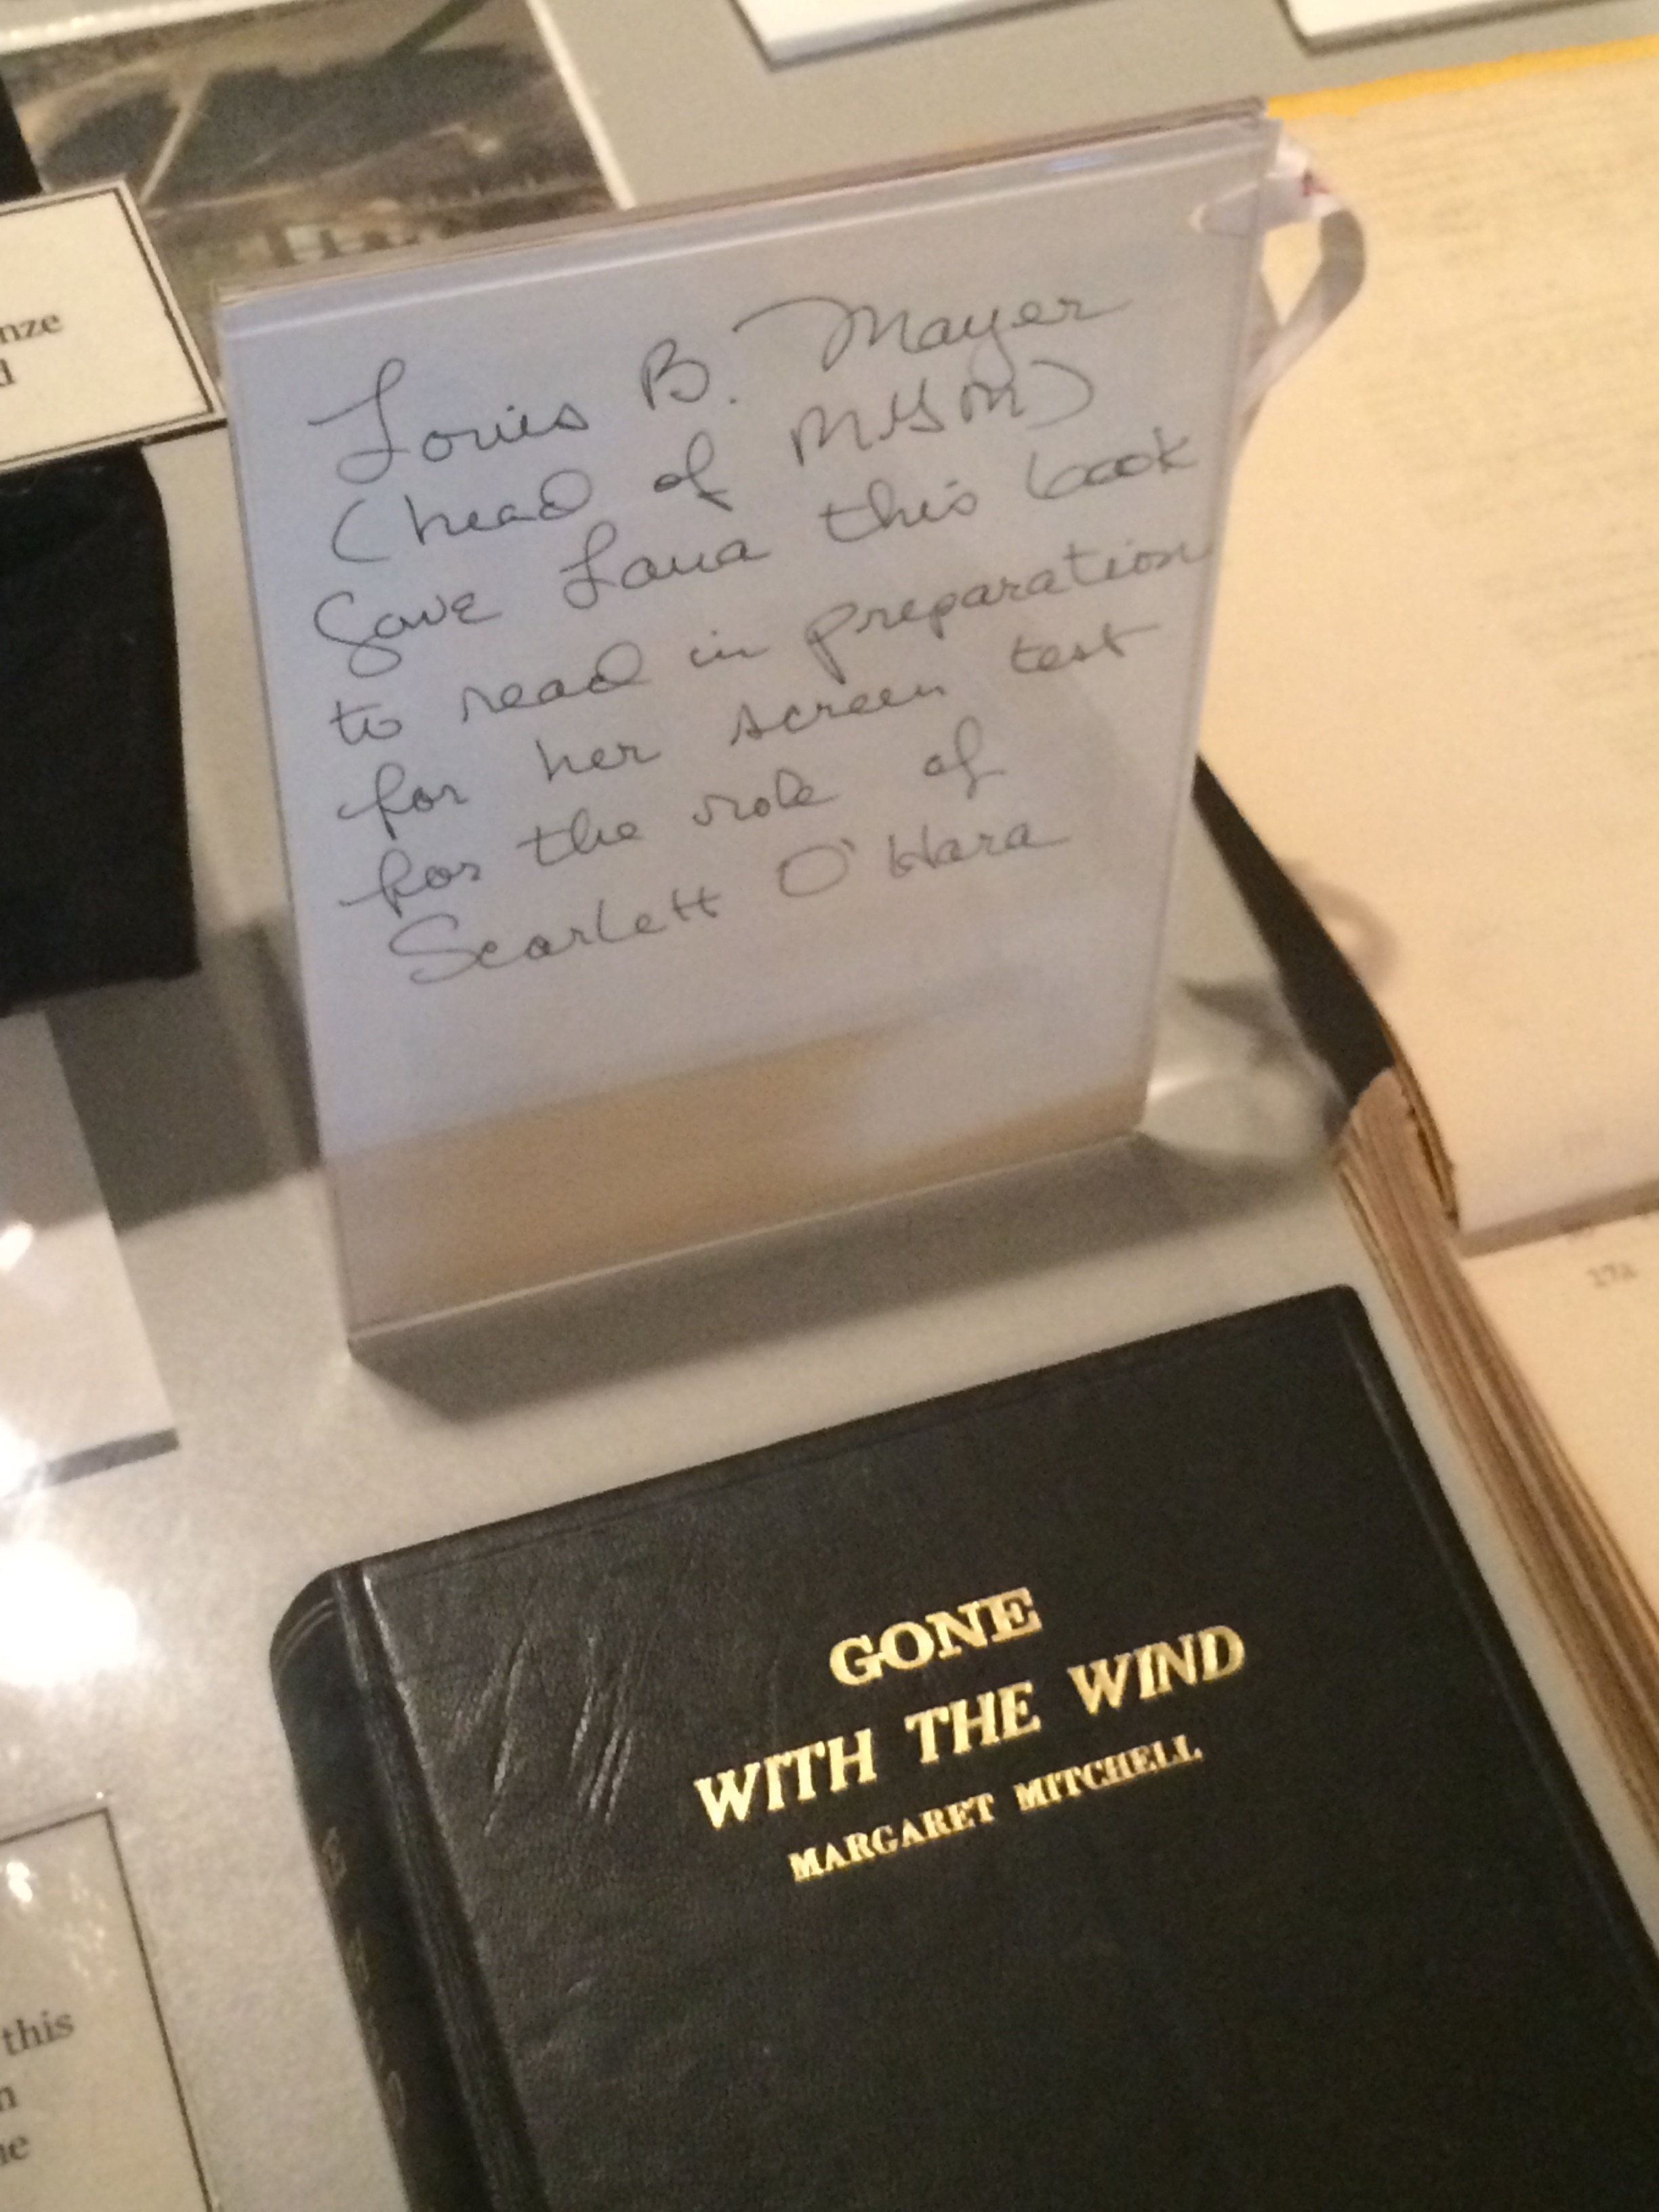 nze
d
Louis B. Mayer
(head of MGM)
Gave Lana this book
to read in preparation
for her screen test
for the role of
Scarlett O'Hara
174
GONE
WITH THE WIND
MARGARET MITCHELL
this
n
he